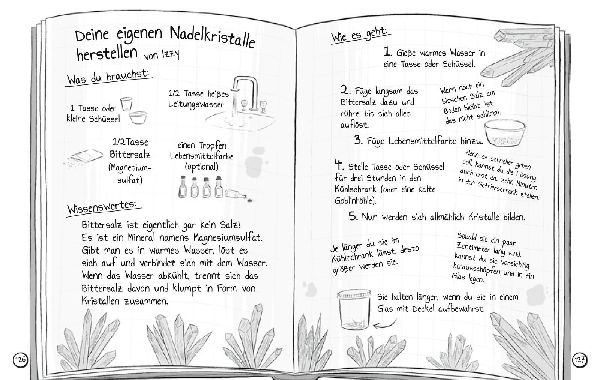 Deine eigenen Nadelkristalle
herstellen von Izzy
Was du brauchst:
1 Tasse oder
kleine Schüssel
1/2 Tasse heißes
Leitungswasser
1/2 Tasse
Bittersalz
(Magnesium-
sulfat)
einen Tropfen
Lebensmittelfarbe
(optional)
Wissenswertes:
Bittersalz ist eigentlich gar kein Salz!
Es ist ein Mineral namens Magnesiumsulfat.
Gibt man es in warmes Wasser, löst es
sich auf und verbindet sich mit dem Wasser.
Wenn das Wasser abkühlt, trennt sich das
Bittersalz davon und klumpt in Form von
Kristallen zusammen.
126
Wie es geht:
1. Gieße warmes Wasser in
eine Tasse oder Schüssel.
2. Füge langsam das
Bittersalz dazu und
rühre bis sich alles
auflöst.
Wenn noch ein
bisschen Salz am
Boden bleibt ist
das nicht schlimm.
3. Füge Lebensmittelfarbe hinzu.
4. Stelle Tasse oder Schüssel
für drei Stunden in den
Kühlschrank (oder eine kalte
Goblinhöhle).
Wenn es schneller gehen
soll, kannst du die Lösung
auch erst für zehn Minuten
in den Gefrierschrank stellen.
5. Nun werden sich allmählich Kristalle bilden.
Je länger du sie im
Kühlschrank lässt, desto
größer werden sie.
Sobald sie ein paar
Zentimeter lang sind,
kannst du sie vorsichtig
herausschöpfen und in ein
Glas legen.
Sie halten länger, wenn du sie in einem
Glas mit Deckel aufbewahrst.
127